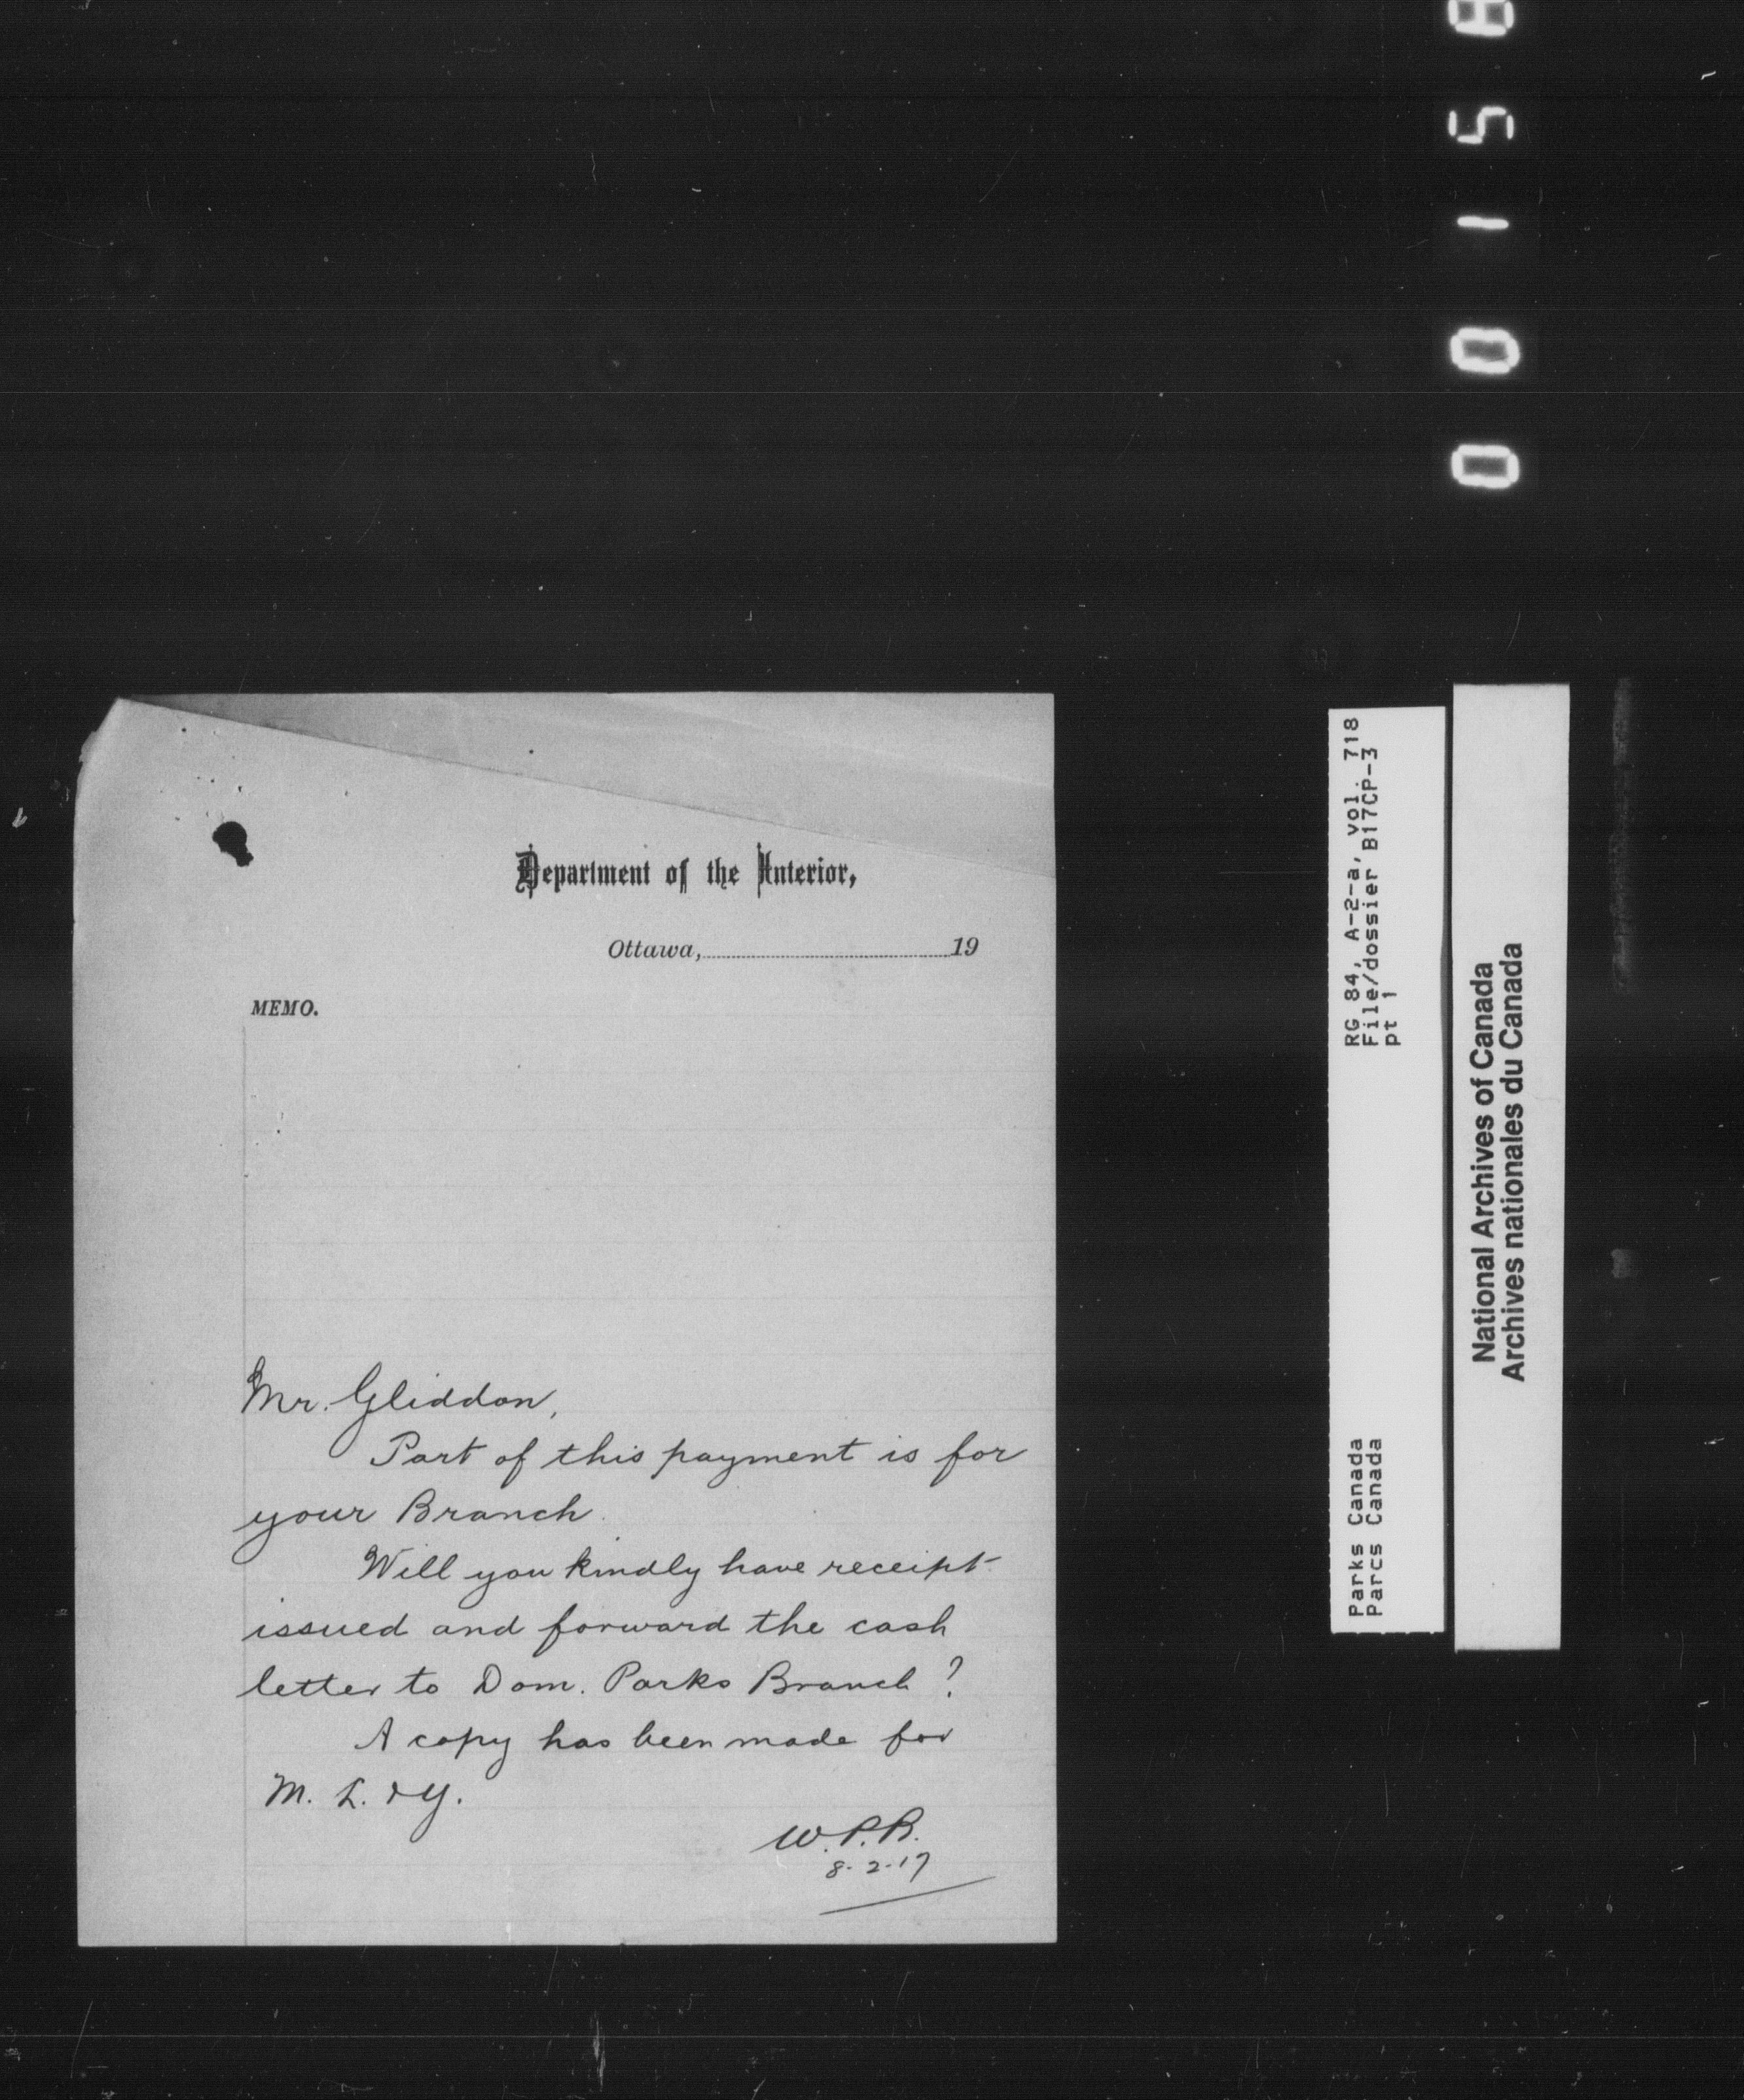 Department of the Interior,
Ottawa, 19
MEMO.
Mr. Gliddon,
Part of this payment is for
your Branch.
Will you kindly have receipt
issued and forward the cash
letter to Dom. Parks Branch?
A copy has been made for
M. L. & Y.
W.P.R.
8-2-17
00158
RG 84, A-2-a, vol. 718
File/dossier B17CP-3
pt 1
Parks Canada
Parcs Canada
National Archives of Canada
Archives nationales du Canada